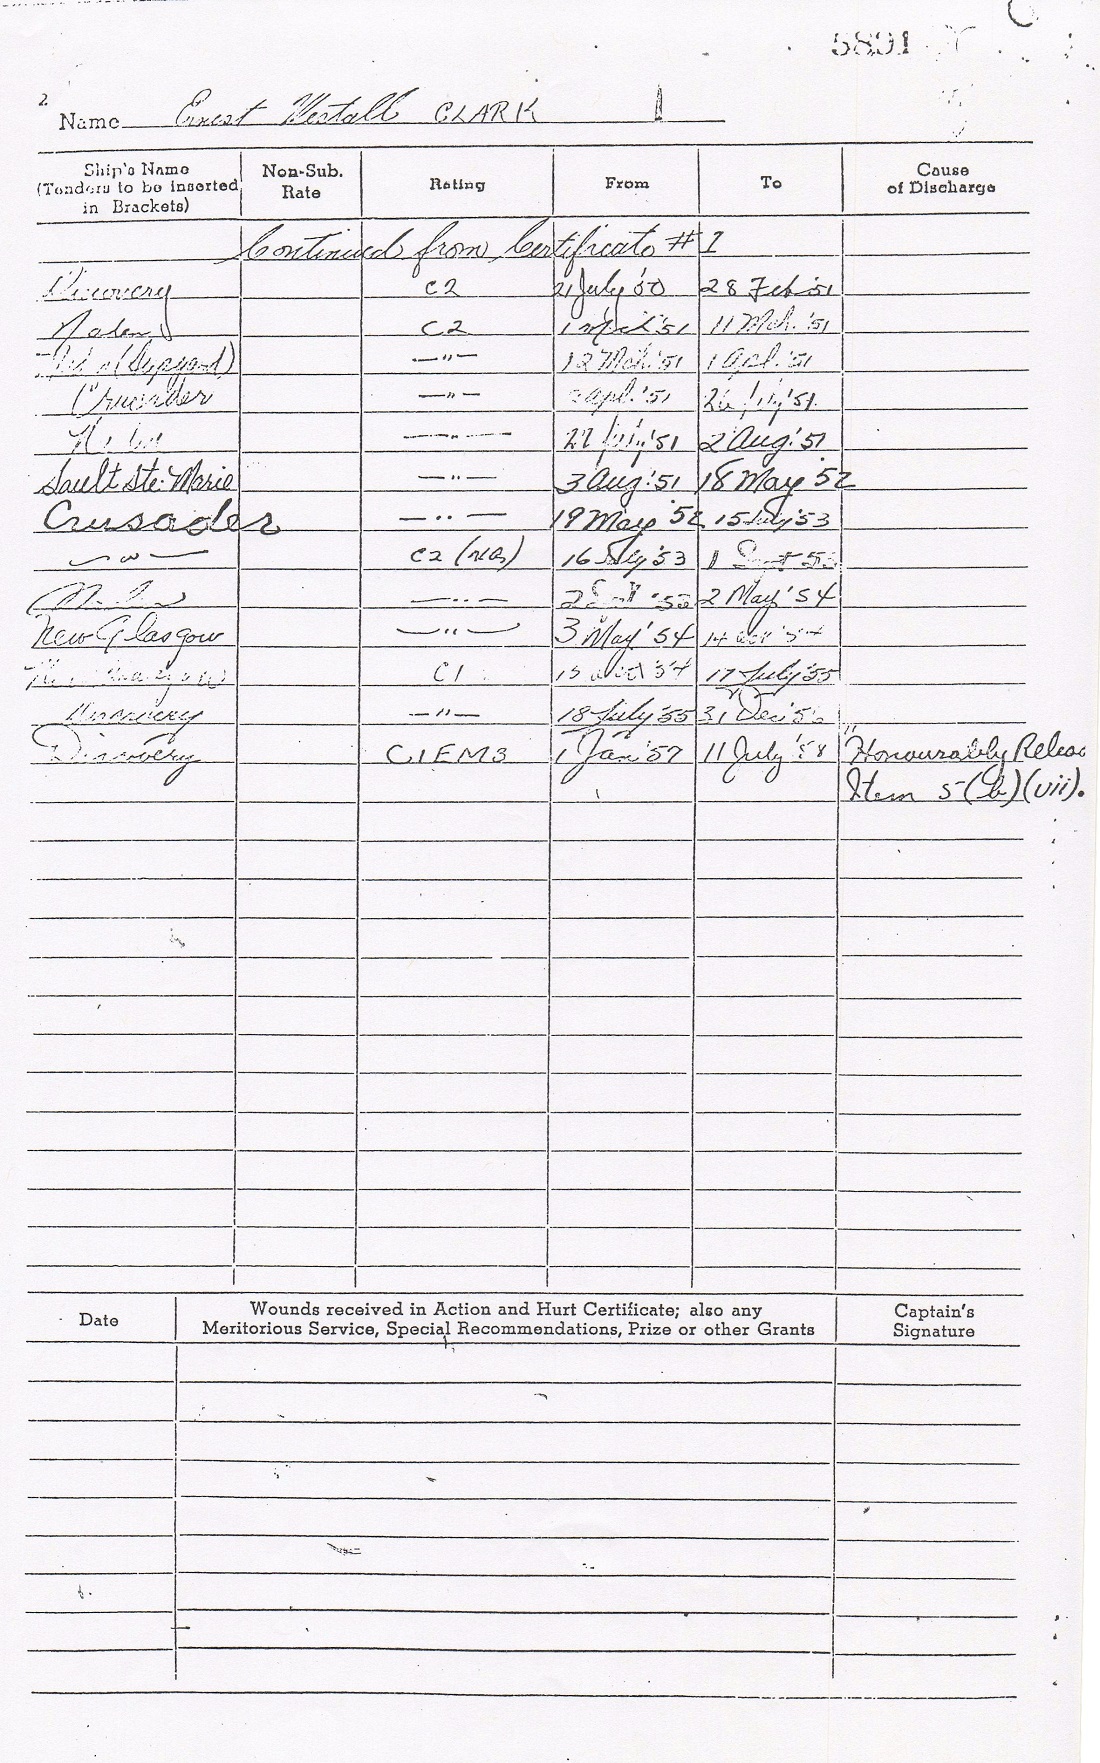 5891
2.
Name Ernest Westall CLARK
Ship's Name (Tenders to be inserted in Brackets) Non-Sub. Rate Rating From To Cause of Discharge
Continued from Certificate # 1
Discovery C2 21 July '50 28 Feb '51
Naden C2 1 Mch '51 11 Mch. '51
C2 12 Mch. '51 1 Apl. '51
Crusader —"— Apl. '51 26 July '51
—"— 27 July '51 2 Aug. '51
Sault Ste. Marie —"— 3 Aug. '51 18 May '52
Crusader —"— 19 May '52 15 July '53
—"— C2 (NQ) 16 July '53 1 Sept 53
—"— 2 Sept '53 2 May '54
New Glasgow —"— 3 May '54 14 Oct '54
New Glasgow C1 15 Oct '54 17 July '55
Discovery —"— 18 July '55 31 Dec '56
Discovery C1EM3 1 Jan '57 11 July '58 Honourably Releas
Item 5(b)(vii).
Date Wounds received in Action and Hurt Certificate; also any Captain's
Meritorious Service, Special Recommendations, Prize or other Grants Signature